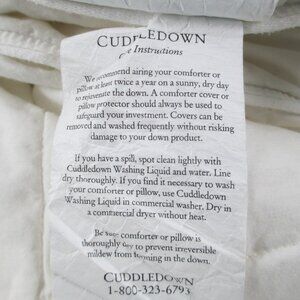 CUDDLEDOWN
Care Instructions
We recommend airing your comforter or
pillow at least twice a year on a sunny, dry day
to rejuvenate the down. A comforter cover or
pillow protector should always be used to
safeguard your investment. Covers can be
removed and washed frequently without risking
damage to your down product.
If you have a spill, spot clean lightly with
Cuddledown Washing Liquid and water. Line
dry thoroughly. If you find it necessary to wash
your comforter or pillow, use Cuddledown
Washing Liquid in commercial washer. Dry in
a commercial dryer without heat.
Be sure comforter or pillow is
thoroughly dry to prevent irreversible
mildew from forming in the down.
CUDDLEDOWN
1-800-323-6793